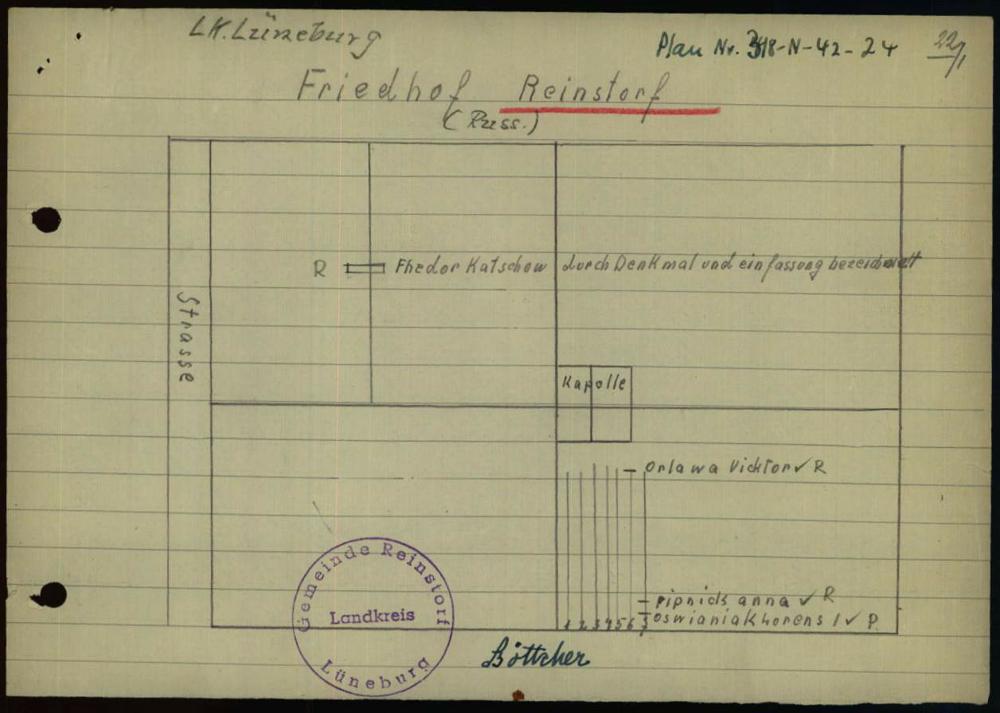 LK. Lüneburg
Plan Nr. 318-N-42-24
22/1
Friedhof Reinstorf
(Russ.)
R Fhedor Katschow durch Denkmal und einfassung bezeichnett
Strasse
Kapelle
Orlawa Vicktor ✓ R
ripnick anna ✓ R
oswianiak horens 1 ✓ P.
1 2 3 4 5 6 7
Gemeinde Reinstorf
Landkreis
Lüneburg
Böttcher